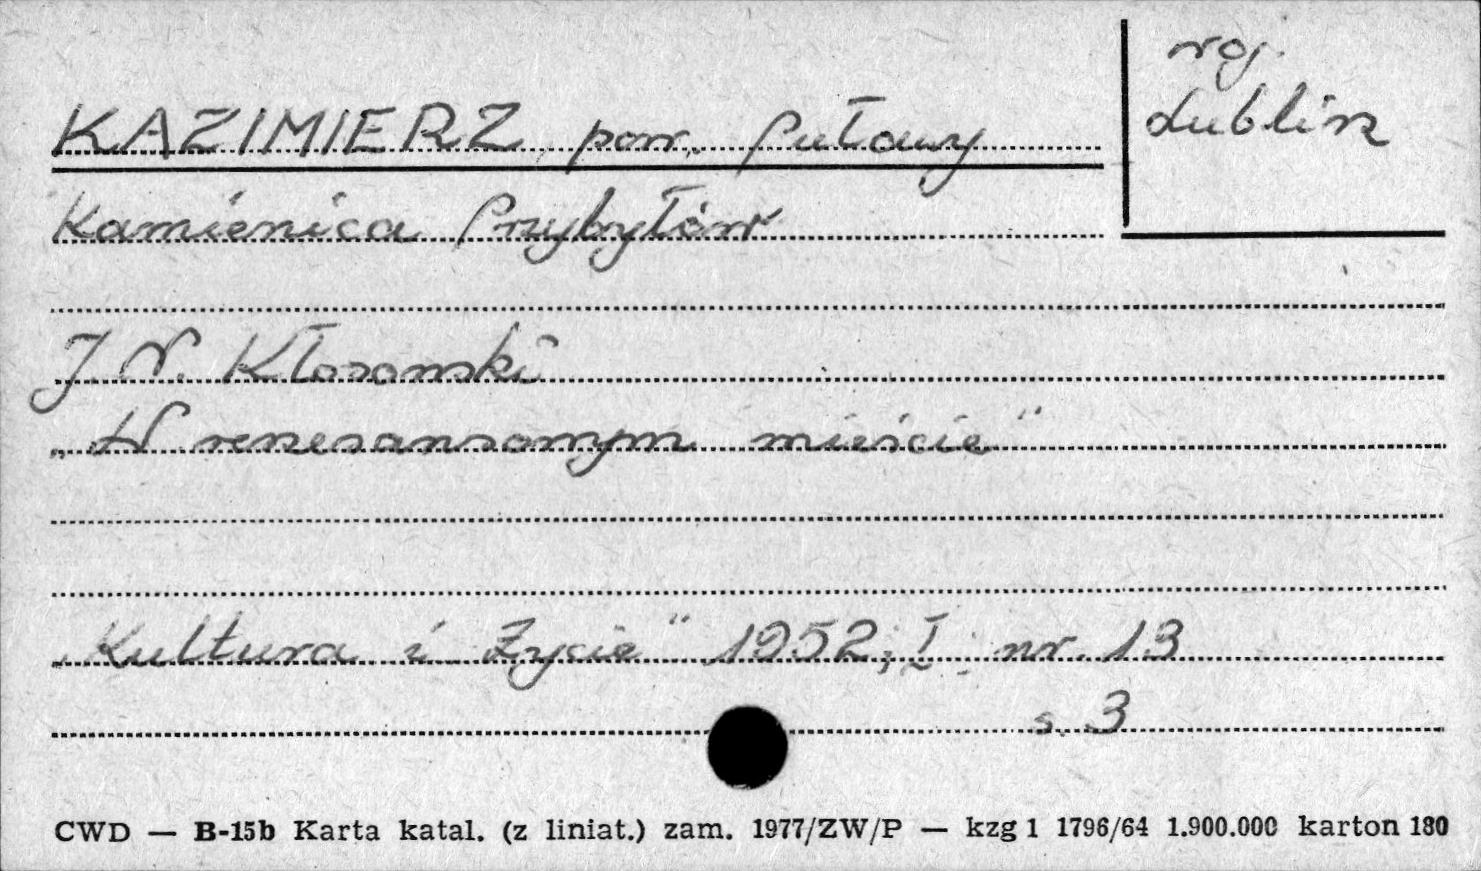 woj.
Lublin
KAZIMIERZ, pow. Puławy
Kamienica Przybyłów
J. N. Kłosowski
„W renesansowym mieście"
„Kultura i Życie" 1952, I nr. 13
s. 3
CWD — B-15b Karta katal. (z liniat.) zam. 1977/ZW/P — kzg 1 1796/64 1.900.000 karton 180